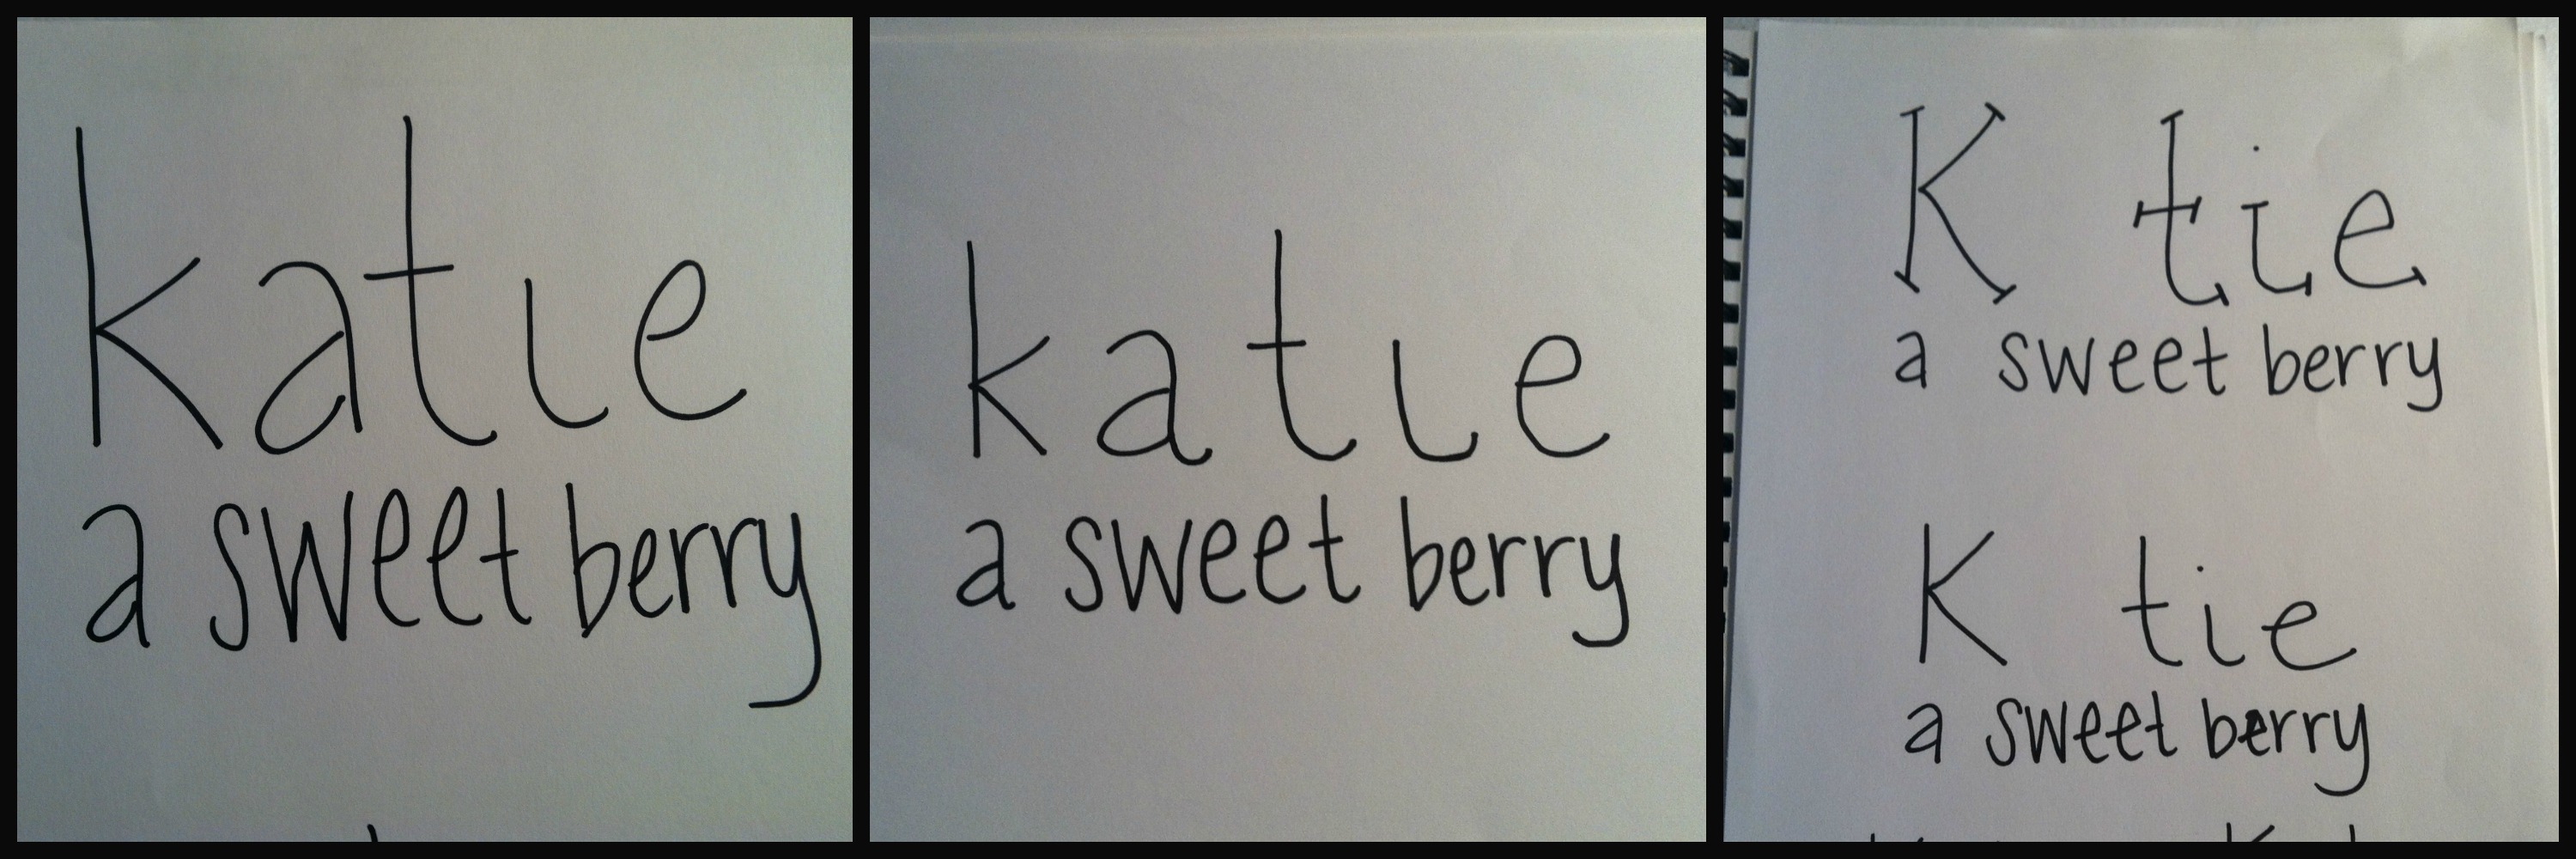 katie
a sweet berry
katie
a sweet berry
K tie
a sweet berry
K tie
a sweet berry